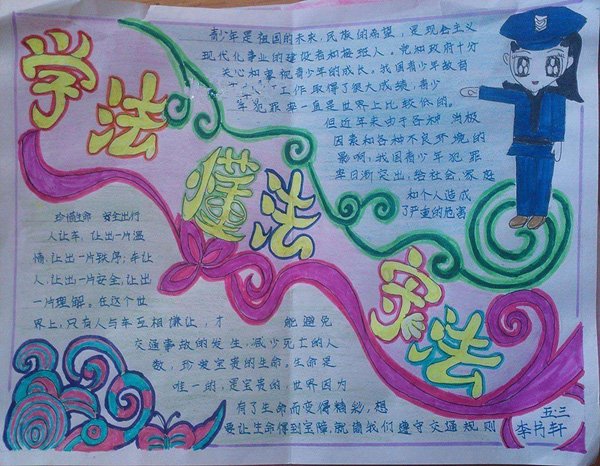 学法
懂法
守法
青少年是祖国的未来,民族的希望,是现会主义
现代化事业的建设者和接班人。党和政府十分
关心和重视青少年的成长。我国青少年教育
工作取得了很大成绩,青少
年犯罪率一直是世界上比较低的。
但近年来由于各种消极
因素和各种不良环境的
影响,我国青少年犯罪
率日渐突出,给社会、家庭
和个人造成
了严重的危害
珍惜生命 安全出行
人让车,让出一片温
情,让出一片秩序;车让
人,让出一片安全,让出
一片理解。在这个世
界上,只有人与车互相谦让,才
能避免
交通事故的发生,减少死亡的人
数,珍爱宝贵的生命。生命是
唯一的,是宝贵的,世界因为
有了生命而变得精彩,想
要让生命得到宝障,就请我们遵守交通规则
五.三
李丹轩